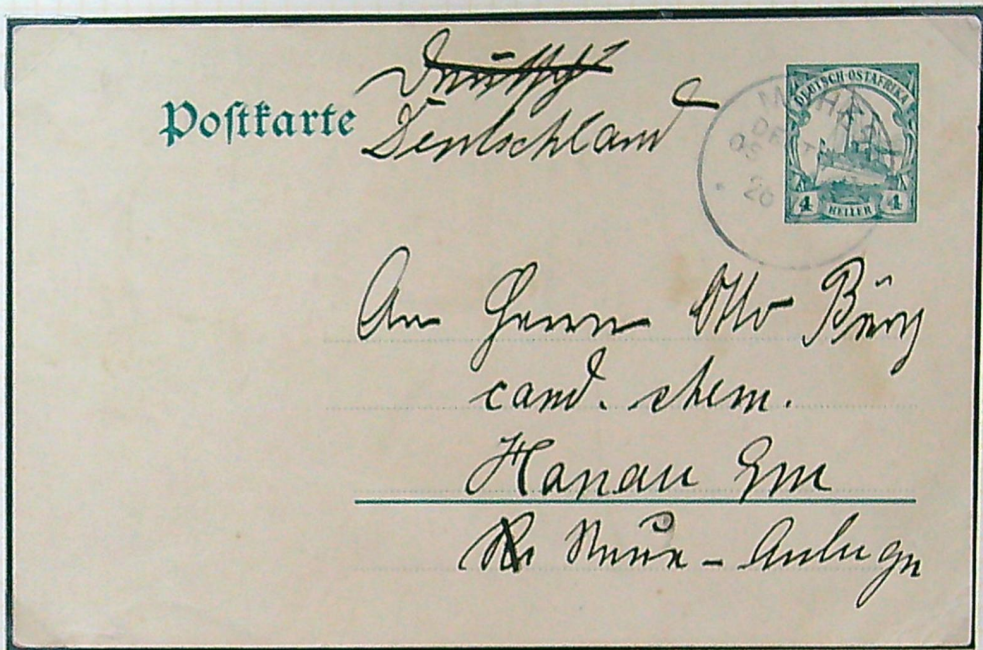 Postkarte
Deutschland
DEUTSCH-OSTAFRIKA
4 HELLER 4
26
An Herrn Otto Bürg
cand. chem.
Hanau
Neue - Anlage